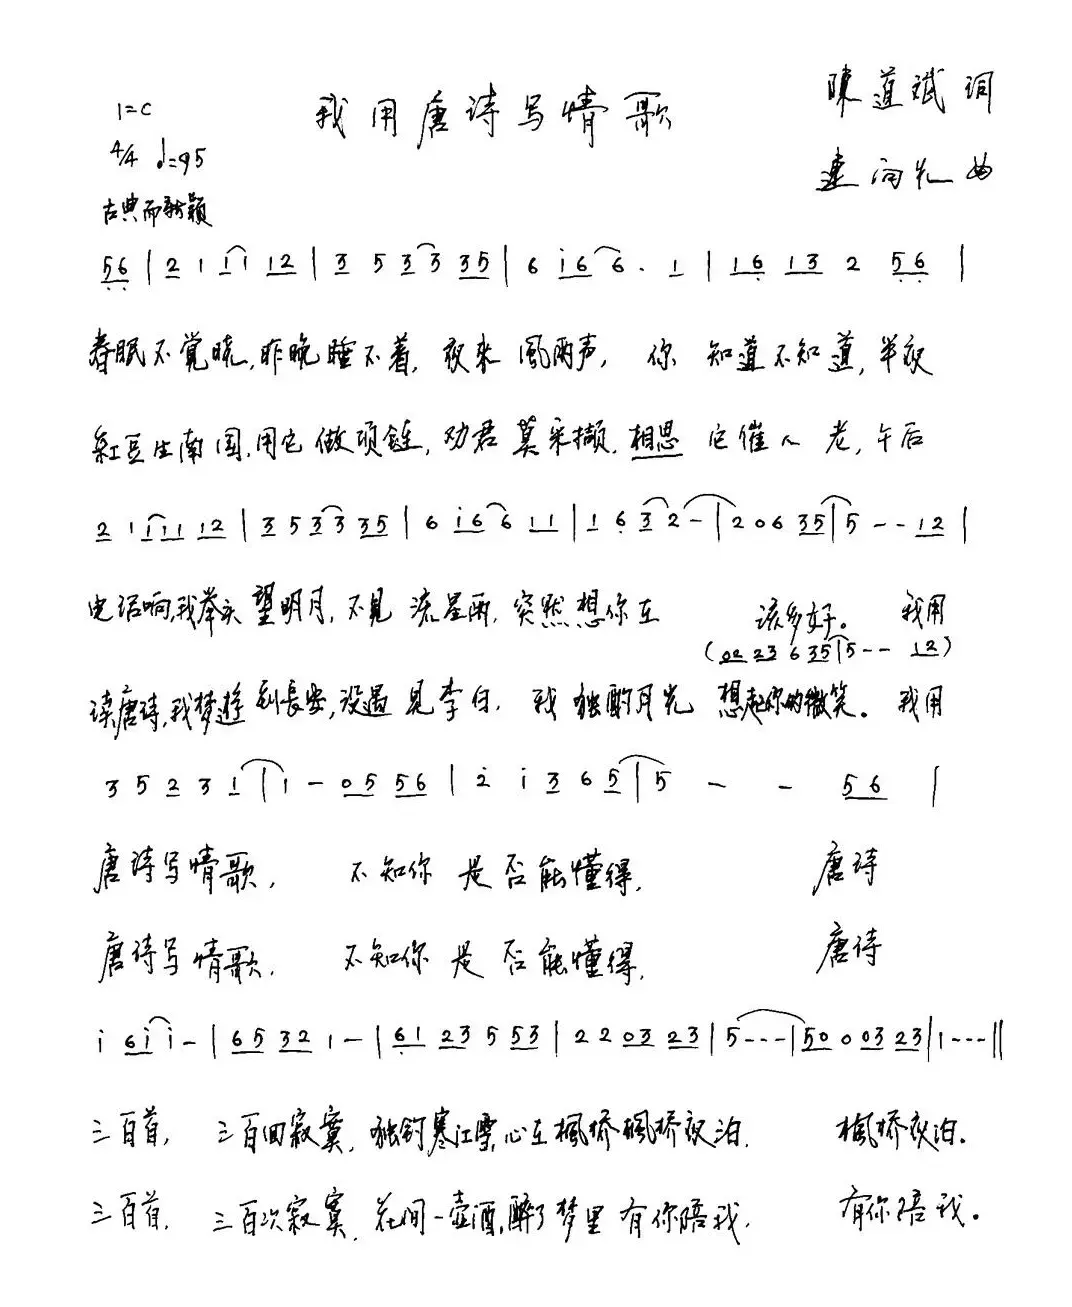 我用唐诗写情歌
陳道斌 词
1=C
4/4 ♩=95
曲
古典而新颖
56 | 2 1 1 1 12 | 3 5 3 3 35 | 6 i 6 6 . 1 | 16 13 2 56 |
春眠不觉晓,昨晚睡不着,夜来風雨声, 你 知道不知道,半夜
紅豆生南国,用它做项链,劝君莫采撷,相思 它催人老,午后
2 1 1 1 1 12 | 3 5 3 3 35 | 6 i 6 6 11 | 1 6 3 2 - | 2 0 6 35 | 5 - - 12 |
电话响,我举头望明月,不见流星雨,突然想你在 该多好。 我用
(02 23 6 35 | 5 - - 12)
读唐诗,我梦遊到長安,没遇見李白, 我独酌月光 想起你的微笑。 我用
3 5 2 3 1 | 1 - 05 56 | 2 i 3 6 5 | 5 - - 56 |
唐诗写情歌, 不知你是否能懂得, 唐诗
唐诗写情歌, 不知你是否能懂得, 唐诗
i 6 i i - | 65 32 1 - | 61 23 5 53 | 2 2 03 23 | 5 - - - | 50 0 03 23 | 1 - - - ||
三百首, 三百回寂寞,独钓寒江雪,心在楓桥楓桥夜泊, 楓桥夜泊。
三百首, 三百次寂寞,花间一壶酒,醉了梦里有你陪我, 有你陪我。